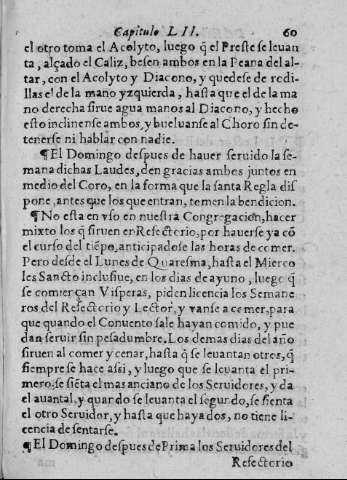 Capitulo LII. 60
el otro toma el Acolyto, luego q̃ el Preste se leuan
ta, alçado el Caliz, besen ambos en la Peana del al-
tar, con el Acolyto y Diacono, y quedese de rodi-
llas el de la mano yzquierda, hasta que el de la ma
no derecha sirue agua manos al Diacono, y hecho
esto inclinense ambos, y bueluanse al Choro sin de-
tenerse ni hablar con nadie.
¶El Domingo despues de hauer seruido la se-
mana dichas Laudes, den gracias ambos juntos en
medio del Coro, en la forma que la santa Regla dis
pone, antes que los que entran, temen la bendicion.
¶No esta en vso en nuestra Congregacion, hacer
mixto los q̃ siruen en Refectorio, por hauerse ya cõ
el curso del tiẽpo, anticipadose las horas de comer.
Pero desde el Lunes de Quaresma, hasta el Mierco
les Sancto inclusiue, en los dias de ayuno, luego q̃
se comerçan Visperas, piden licencia los Semane
ros del Refectorio y Lector, y vanse a comer, para
que quando el Conuento sale hayan comido, y pue
dan seruir sin pesadumbre. Los demas dias del año
siruen al comer y cenar, hasta q̃ se leuantan otros, q̃
siempre se hace assi, y luego que se leuanta el pri-
mero, se siẽta el mas anciano de los Seruidores, y da
el auantal, y quando se leuanta el segundo, se sienta
el otro Seruidor, y hasta que haya dos, no tiene li-
cencia de sentarse.
¶El Domingo despues de Prima los Seruidores del
Refectorio